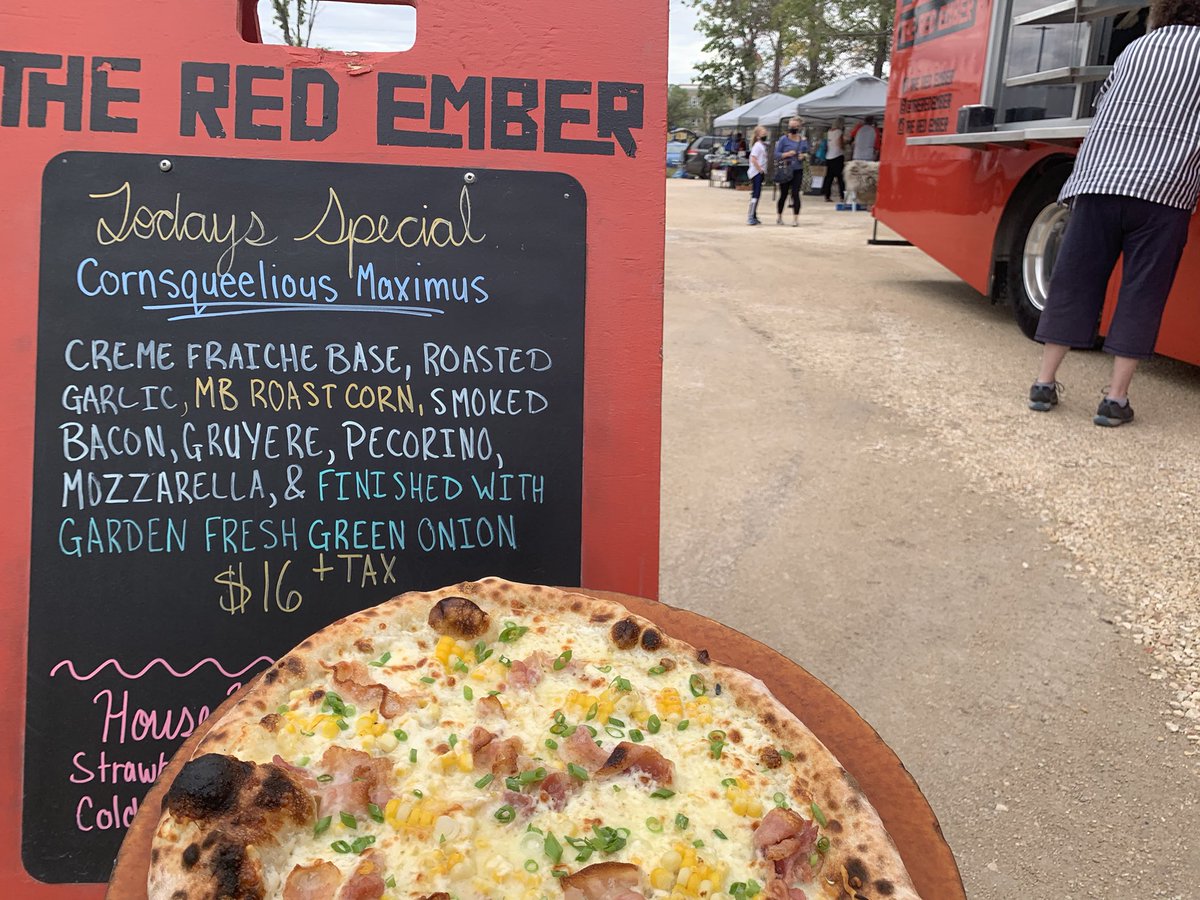 THE RED EMBER
Todays Special
Cornsqueelious Maximus
CREME FRAICHE BASE, ROASTED
GARLIC, MB ROAST CORN, SMOKED
BACON, GRUYERE, PECORINO,
MOZZARELLA, & FINISHED WITH
GARDEN FRESH GREEN ONION
$16 + TAX
House
THE RED EMBER
THE RED EMBER